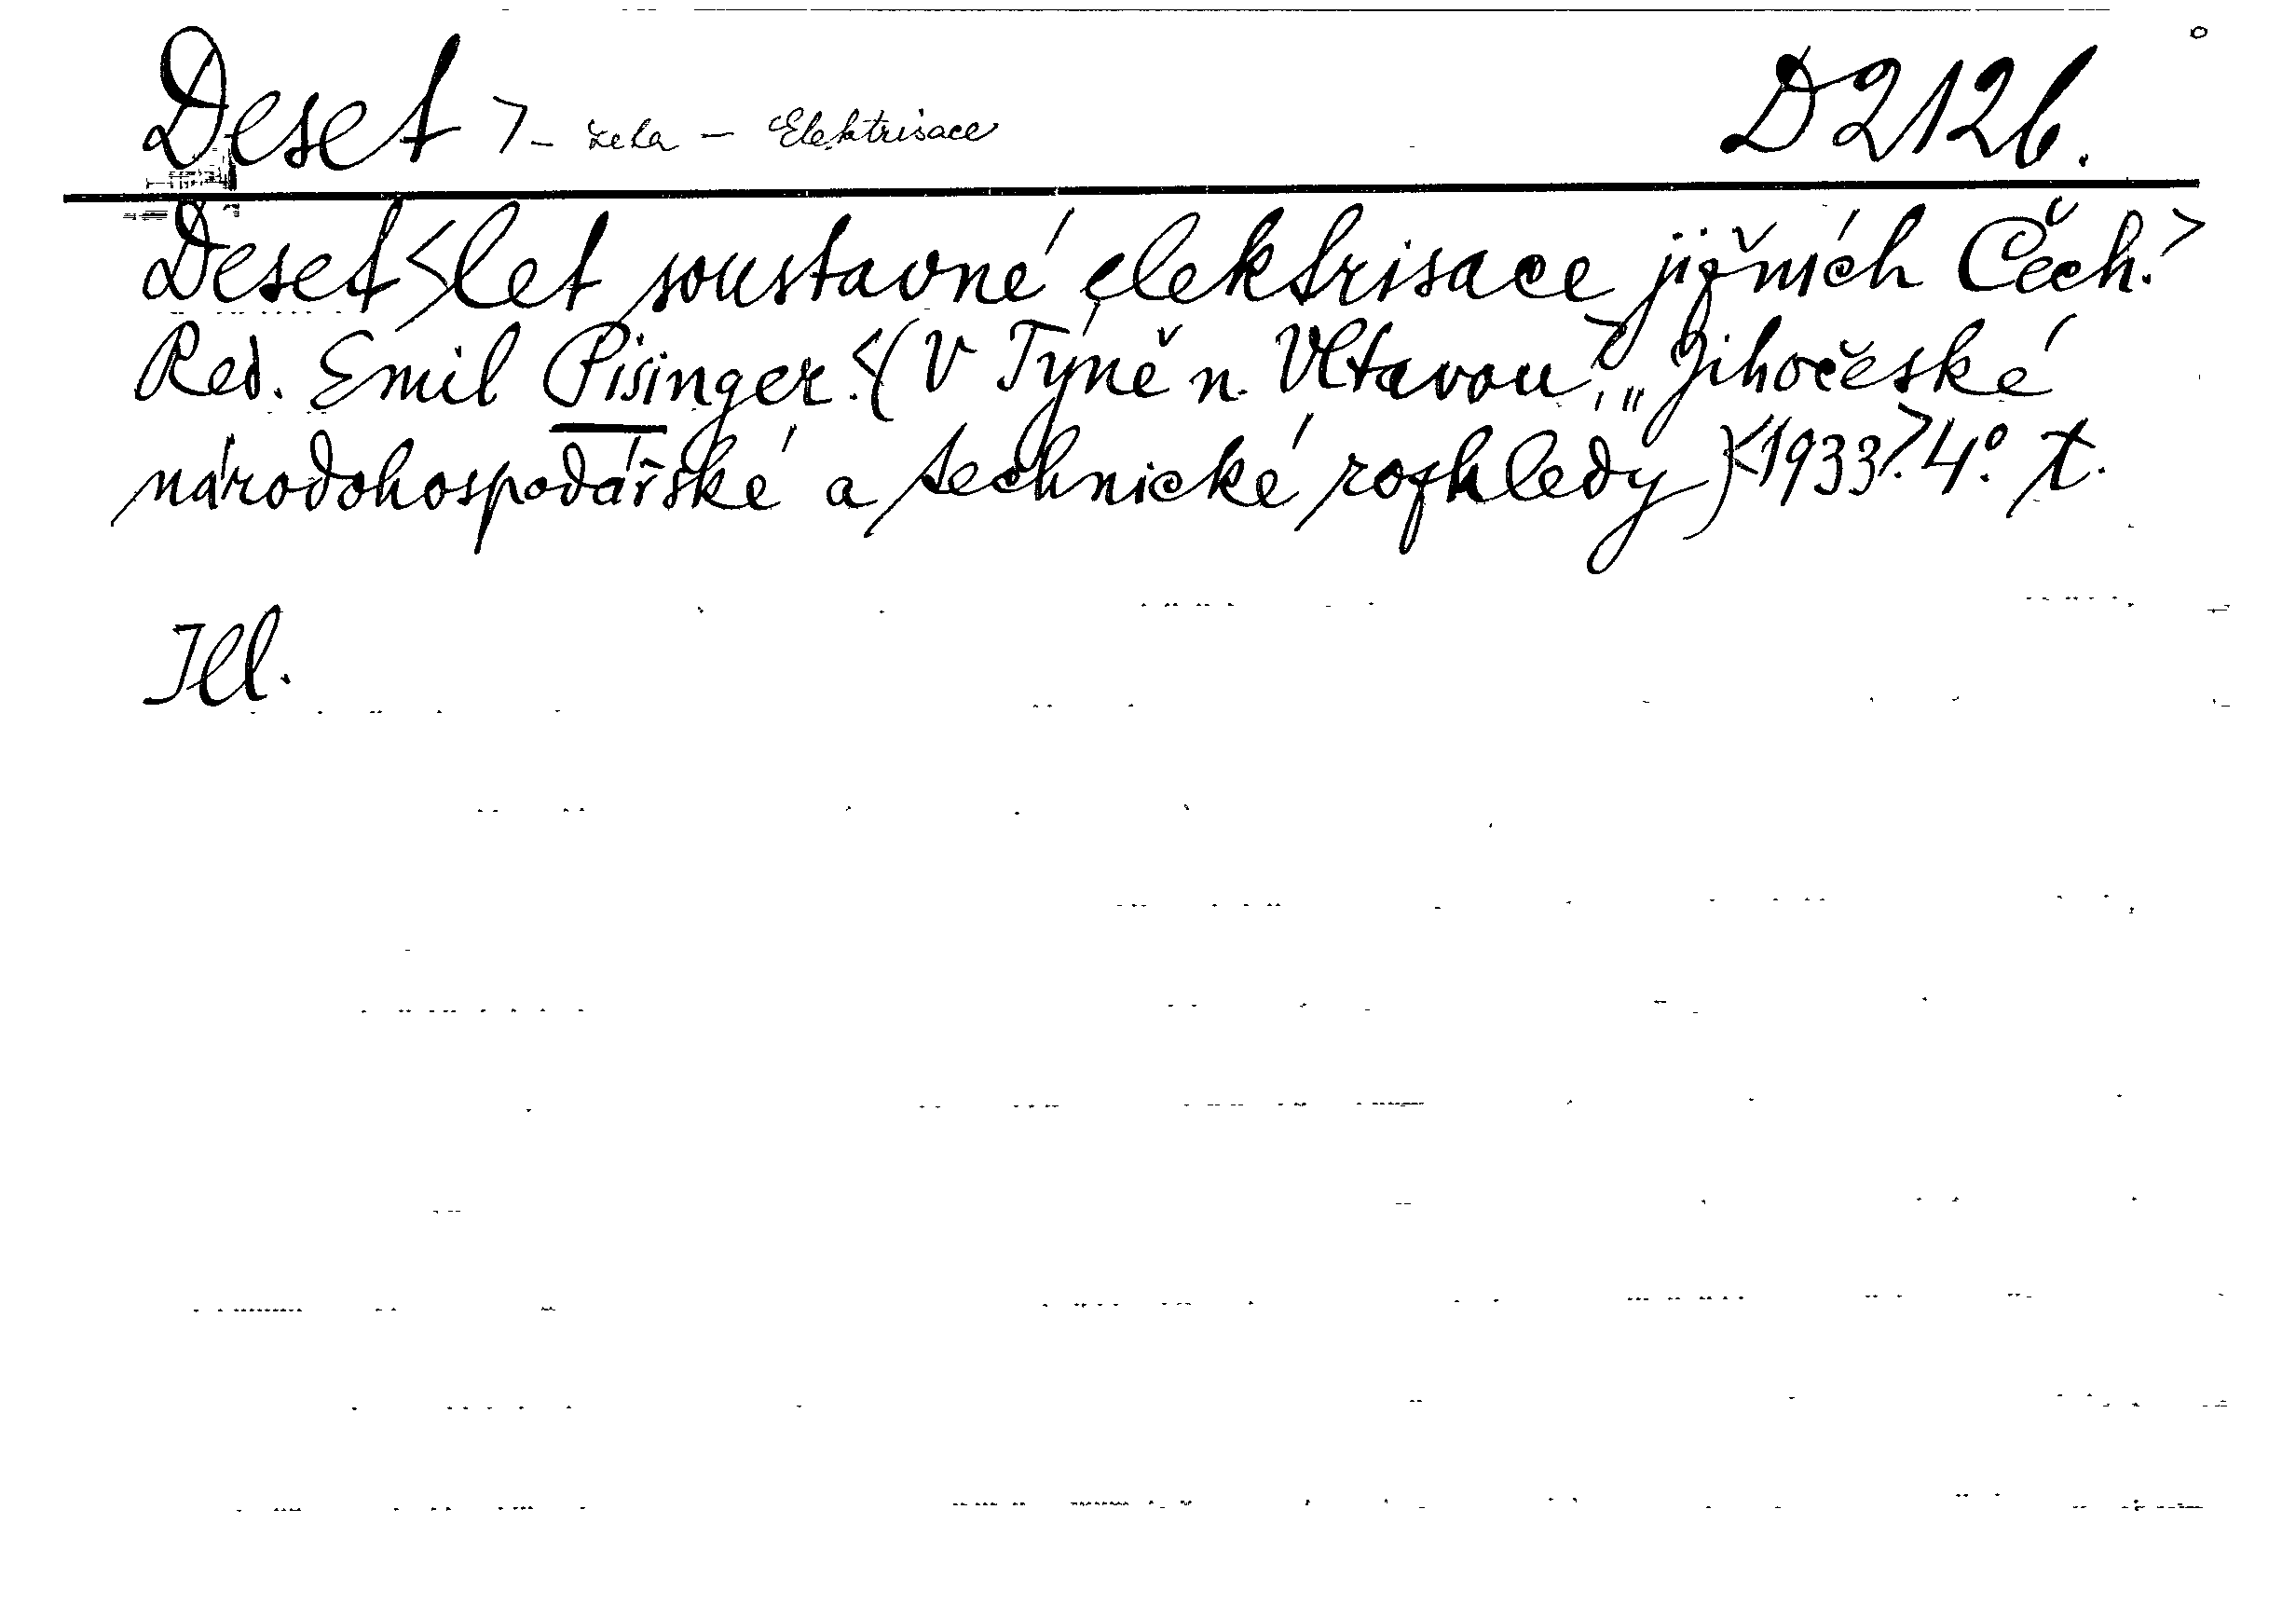 Deset > - - Elektrisace D 2126.
Deset < let soustavné elektrisace jižních Čech. >
Red. Emil Pisinger. < ( V Týně n. Vltavou >, „Jihočeské
národohospodářské a technické rozhledy ) < 1933 >. 4°. X.
Ill.